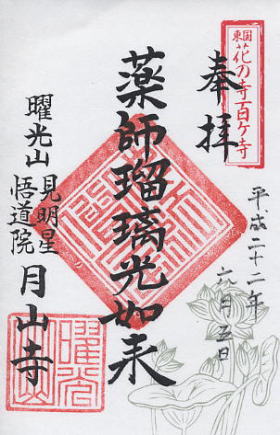 東国
花の寺百ヶ寺
奉拝
平成二十二年
六月五日
薬師瑠璃光如来
曜光山
見明星
悟道院
月山寺